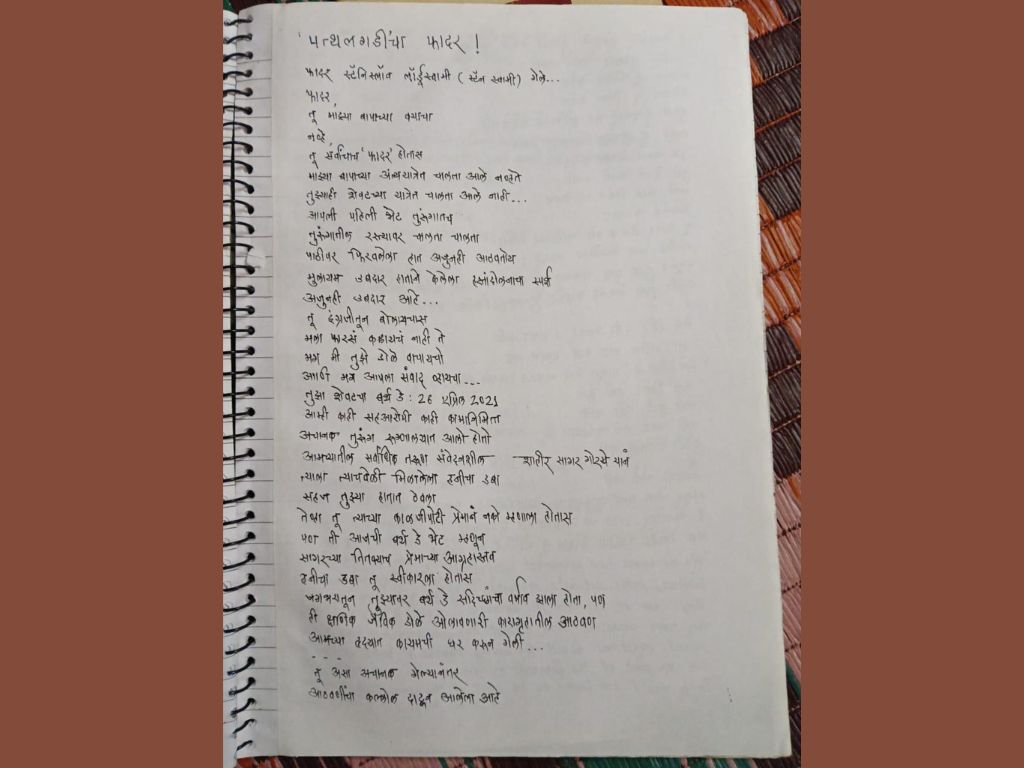 'पत्थलगडींचा फादर !
फादर स्टॅनिस्लॉव लॉर्डूस्वामी ( स्टॅन स्वामी) गेले...
फादर,
तू माझ्या बापाच्या वयाचा
नव्हे,
तू सर्वांचाच 'फादर' होतास
माझ्या बापाच्या अंत्ययात्रेत चालता आले नव्हते
तुझ्याही शेवटच्या यात्रेत चालता आले नाही...
आपली पहिली भेट तुरुंगातच
तुरुंगातील रस्त्यावर चालता चालता
पाठीवर फिरवलेला हात अजुनही आठवतोय
मुलायम उबदार हाताने केलेला हस्तांदोलनाचा स्पर्श
अजुनही उबदार आहे...
तू इंग्रजीतून बोलायचास
मला फारसं कळायचं नाही ते
मग मी तुझे डोळे वाचायचो
आणि मग आपला संवाद व्हायचा...
तुझा शेवटचा बर्थ डे : 26 एप्रिल 2021
आम्ही काही सहआरोपी काही कामानिमित्त
अचानक तुरुंग रुग्णालयात आलो होतो
आमच्यातील सर्वाधिक तरुण संवेदनशील - शाहीर सागर गोरखे यानं
त्याला त्याचवेळी मिळालेला हनीचा डबा
सहज तुझ्या हातात ठेवला
तेव्हा तू त्याच्या काळजीपोटी प्रेमानं नको म्हणाला होतास
पण ती आजची बर्थ डे भेट म्हणून
सागरच्या तितक्याच प्रेमाच्या आग्रहास्तव
हनीचा डबा तू स्वीकारला होतास
जगभरातून तुझ्यावर बर्थ डे सदिच्छांचा वर्षाव झाला होता, पण
ही क्षणिक जैविक डोळे ओलावणारी कारागृहातील आठवण
आमच्या हृदयात कायमची घर करून गेली...
- - -
तू असा अचानक गेल्यानंतर
आठवणींचा कल्लोळ दाटून आलेला आहे